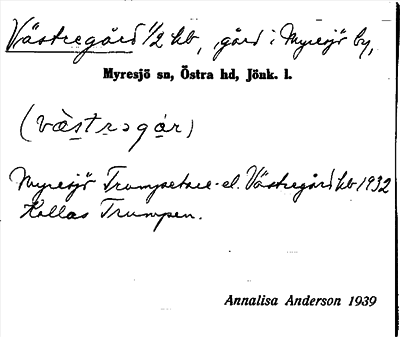 Västregård 1/2 hb, gård i Myresjö by,
Myresjö sn, Östra hd, Jönk. l.
(västrəgár)
Myresjö Trumpetare- el. Västregård hb 1932
Kallas Trumpen.
Annalisa Anderson 1939